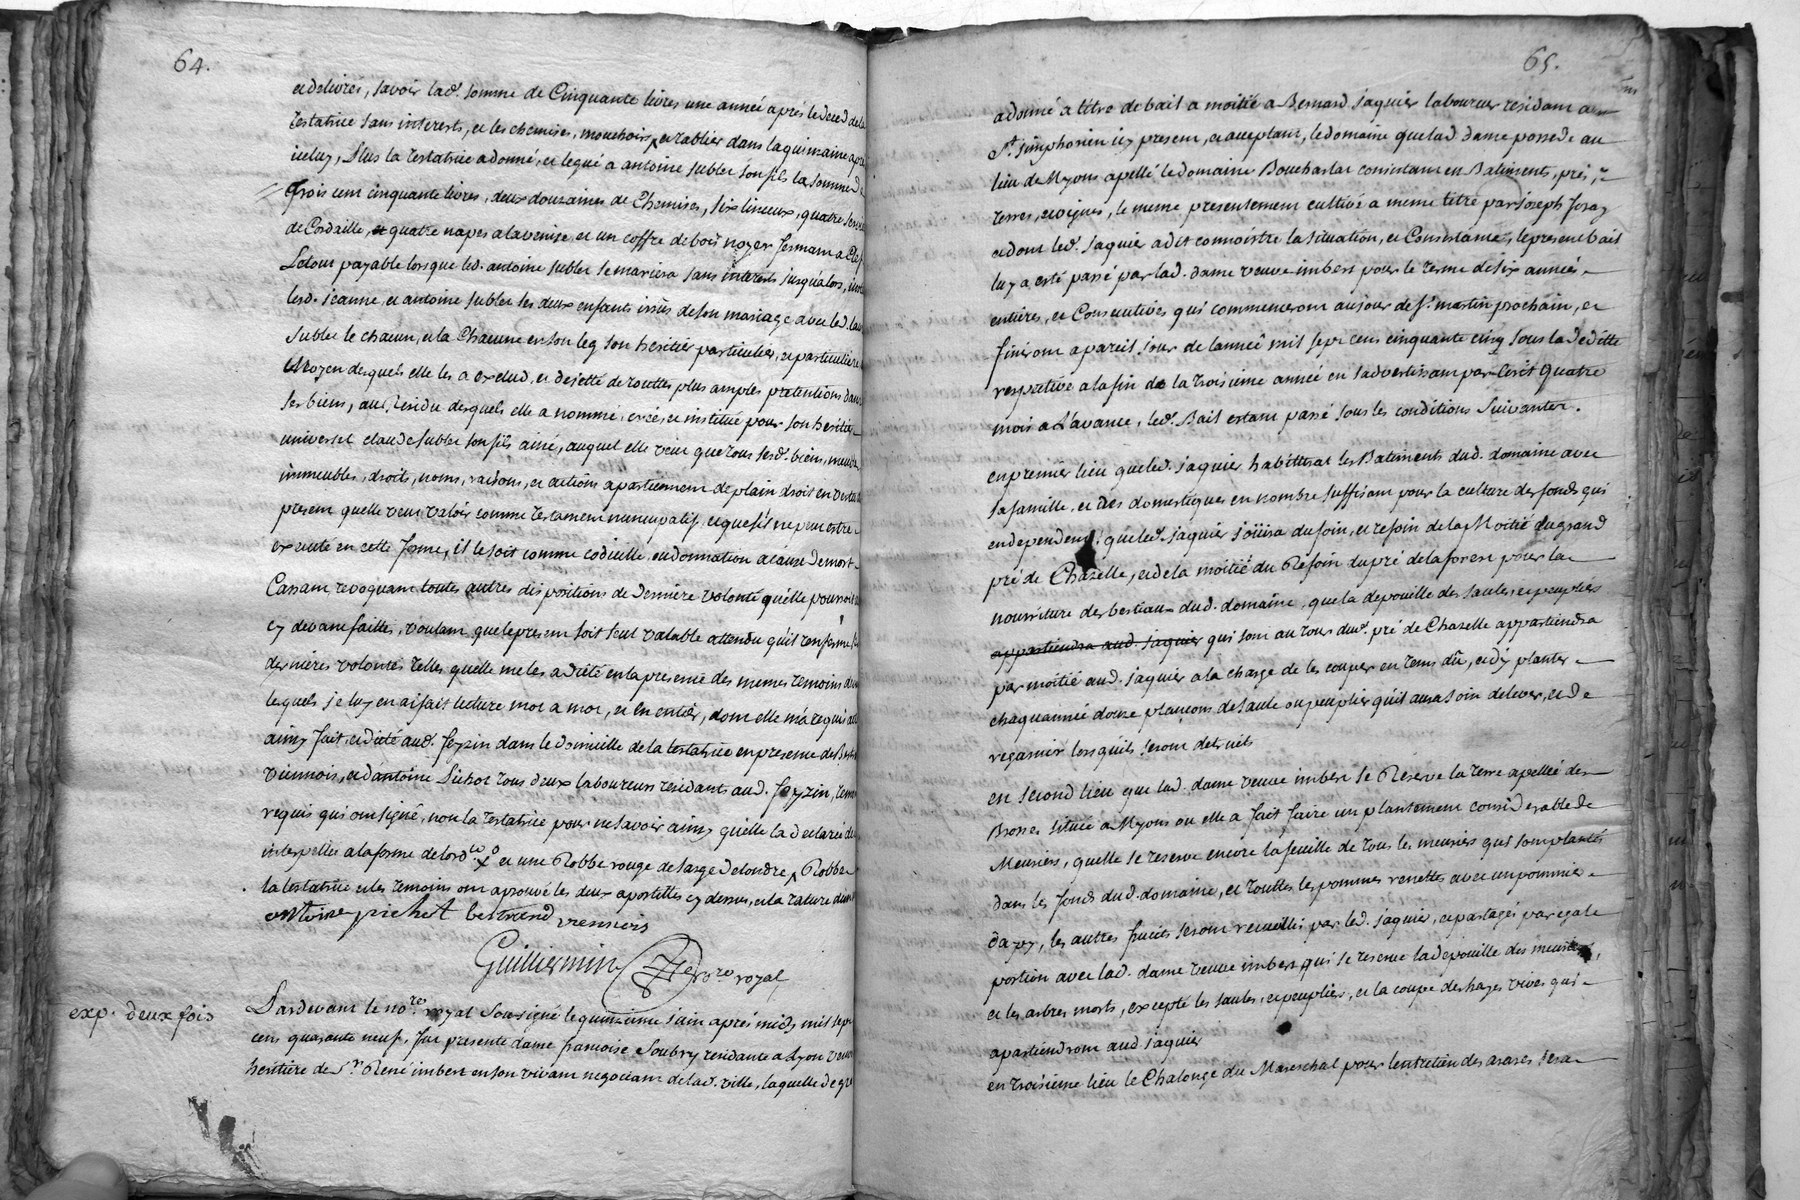 64.
et delivrés, savoir lad. somme de Cinquante livres une année aprés le deced de la
testatrice sans interests, et les chemises, mouchoirs, et tablier dans la quinzaine apre
iceluy, Plus la testatrice a donné, et legué a antoine subler son fils la somme de
Trois cent cinquante livres, deux douzaines de Chemises, six linceux, quatre
de Cordaille, et quatre napes a la venise et un coffre de bois noyer fermant a Clef
Le tout payable lorsque led. antoine subler se mariera sans interests jusqu'alors,
lesd. jeanne, et antoine subler ses deux enfants issus de son mariage avec led.
subler le chacun, et la Chacune en son leg son heritier particulier, et particuliere
Moyen desquels elle les a exclud, et dejetté de touttes plus amples pretentions dans
ses biens, au Residu desquels elle a nommé, créé, et institué pour son heritier
universel claude subler son fils ainé, auquel elle veut que tous sesd. biens, meubles
immeubles, droits, noms, raisons, et actions apartiennent de plain droit en vertu du
present quelle veut valoir comme testament nuncupatif, et que s'il ne peut estre
executé en cette forme, il le soit comme codicille, ou donnation a cause de mort
Cassant, revoquant toutes autres dispositions de derniere volonté qu'elle pourroit
cy devant faittes, voulant que le present soit seul valable attendu qu'il renferme
dernieres volontés telles quelle me les a dicté en la presence des memes temoins
lequels je luy en ai fait lecture mot a mot, et en entier, dont elle m'a requis acte
ainsy fait, et dicté aud. feyzin dans le domicille de la testatrice en presence de
viennois, et d'antoine Pichot tous deux laboureurs residants aud. feyzin, temoins
requis qui ont signé, non la testatrice pour ne savoir ainsy qu'elle l'a declaré de
interpellée a la forme de lord.ce x° et une Robbe rouge de sarge de londre x Robbe
la testatrice et les temoins ont aprouvé les deux apostilles cy dessus, et la rature
antoine pichot bertrand
viennois
Guilliermin no.re royal
exp. deux fois
Pardevant le no.re royal Soussigné le quinzieme juin aprés midy mil sept
cens quarante neuf, fut presente dame françoise Soubry residante a Lyon veuve
heritiere de S.r René imbert en son vivant negociant de lad. ville, laquelle de gré
65.
a donné a titre de bail a moitié a Bernard jaquier laboureur residant a
S.t simphorien icy present, et acceptant, le domaine que lad dame possede au
lieu de Myons apellé le domaine Boucharlat consistant en Batiments, prés,
terres, et vignes, le meme presentement cultivé a meme titre par joseph foray
et dont led. jaquier a dit connoistre la situation, et Consistance, le present bail
luy a esté passé par lad. dame veuve imbert pour le terme de six années
entieres, et Consecutives qui commenceront au jour de S.t martin prochain, et
finiront a pareil jour de l'année mil sept cens cinquante cinq sous la deditte
respective a la fin de la troisieme année en s'advertissant par Ecrit quatre
mois a L'avance, led. Bail estant passé sous les conditions suivantes.
en premier lieu que led. jaquier habittera les Batiments dud. domaine avec
sa famille, et des domestiques en nombre suffisant pour la culture des fonds qui
en dependent. que led. jaquier joüira du foin, et refoin de la Moitié du grand
pré de Chazelle, et de la moitié du Refoin du pré de la forest pour la
nourriture des bestiaux dud. domaine, que la depouille des saules, et peupliés
appartiendra aud. jaquier qui sont au tour dud. pré de Chazelle appartiendra
par moitié aud. jaquier a la charge de les couper en tems dû, et d'y planter
chaqu'année douze plançons de saule ou peuplier qu'il aura soin d'elever, et de
regarnir lorsqu'ils seront detruits
en second lieu que lad. dame veuve imbert se Reserve la terre apellée des
Brosses située a Myons ou elle a fait faire un plantement considerable de
Meuriers, quelle se reserve encore la feuille de tous les meuriers qui sont plantés
dans les fonds dud. domaine, et touttes les pommes renettes avec un pommier
d'apy, les autres fruits seront recueillis par led. jaquier, et partagés par egale
portion avec lad. dame veuve imbert qui se reserve la depouille des meuriers,
et les arbres morts, excepté les saules, et peuplies, et la coupe des hayes vives qui
apartiendront aud jaquier
en troisieme lieu le Chalonge du Mareschal pour l'entretien des araires sera